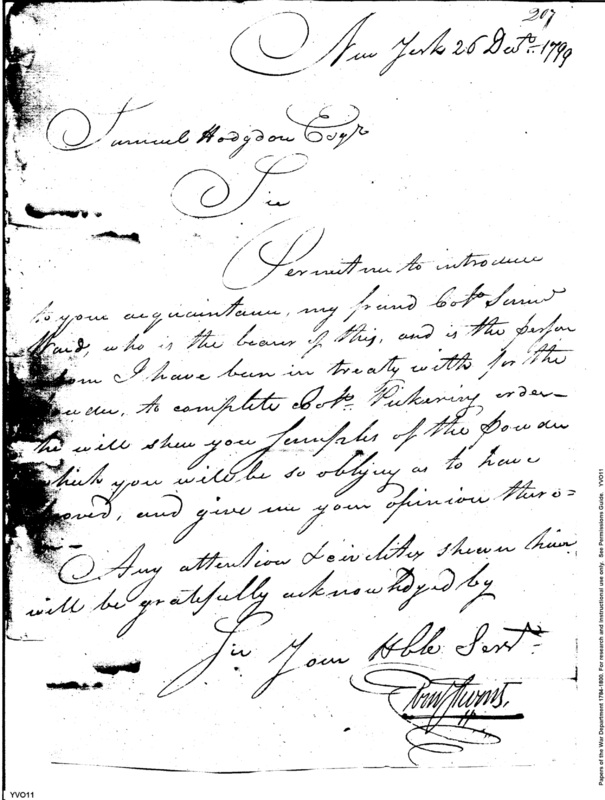 207
New York 26 Decr. 1799
Samuel Hodgdon Esqr
Sir
Permit me to introduce
to your acquaintance, my friend Colo. Saml
Ward, who is the bearer of this, and is the person
whom I have been in treaty with for the
powder, to complete Colo. Pickering order—
he will shew you samples of the Powder
which you will be so obliging as to have
proved, and give me your opinion thero=
Any attention & civilities shewn him
will be gratefully acknowledged by
Sir Your Hble Servt.
YVO11
Papers of the War Department 1784-1800. For research and instructional use only. See Permissions Guide. YVO11